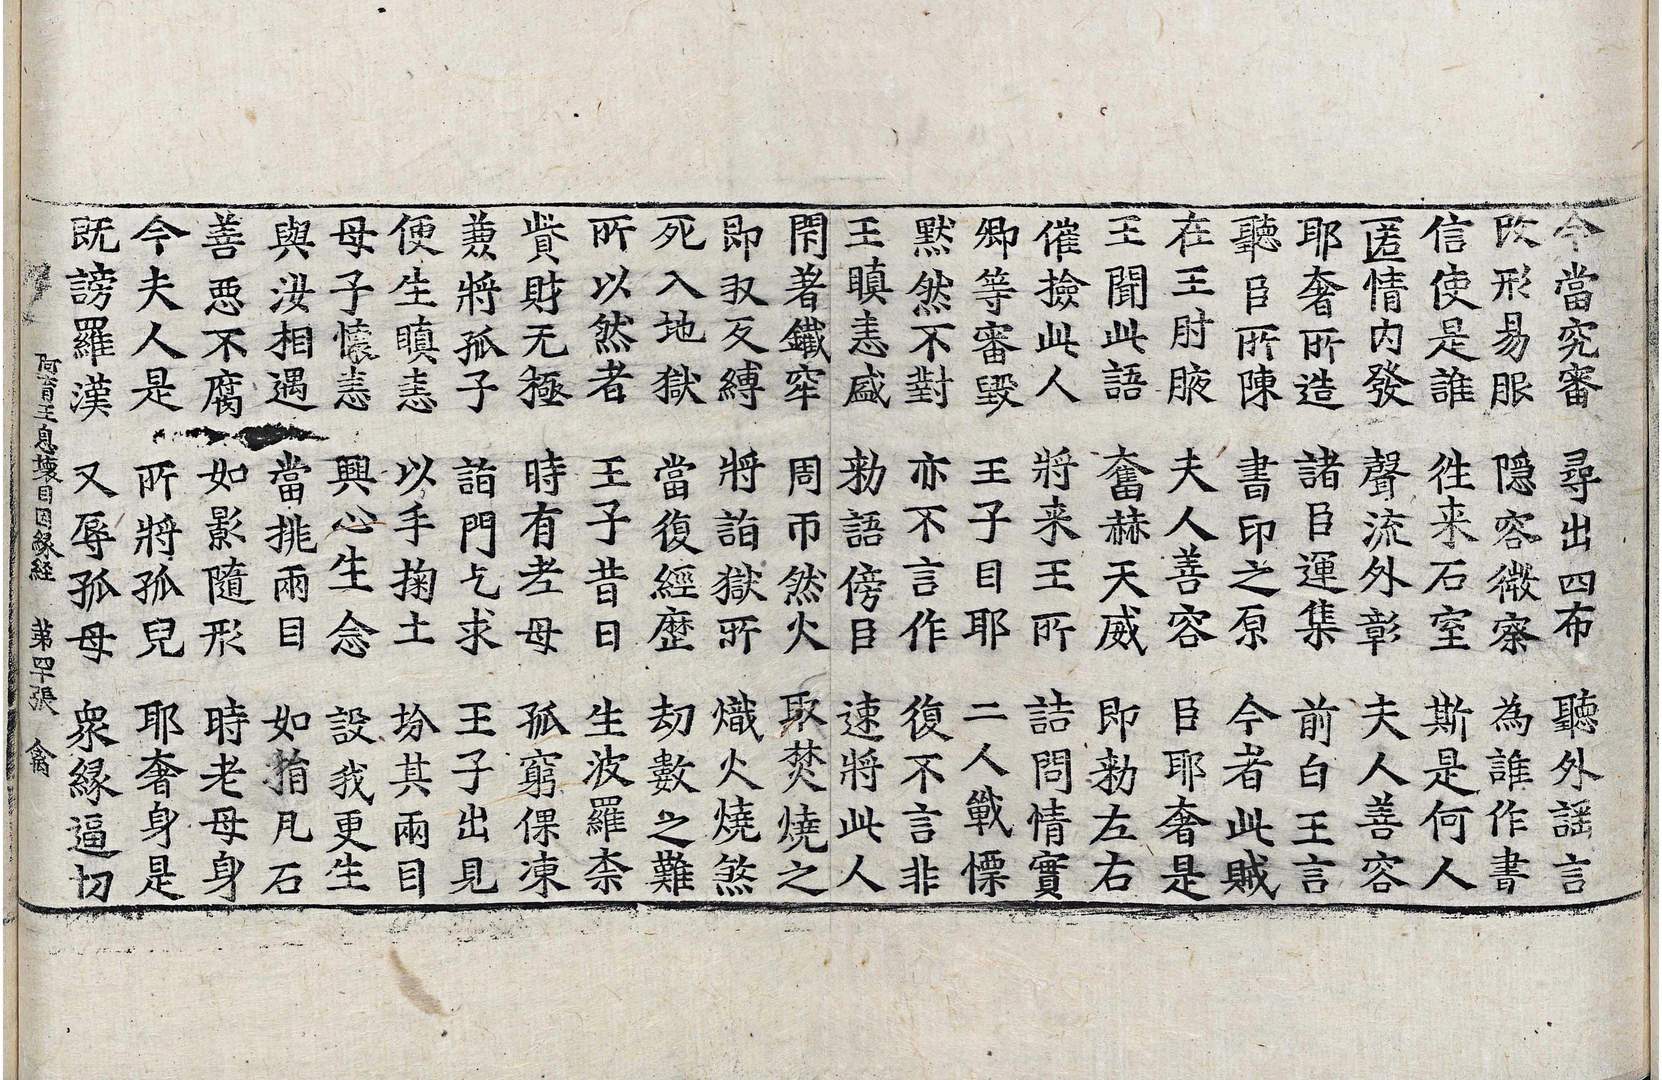 今當究審 尋出四布 聽外謡言
改形易服 隱容微察 為誰作書
信使是誰 徃来石室 斯是何人
匿情内發 聲流外彰 夫人善容
耶奢所造 諸臣運集 前白王言
聽臣所陳 書印之原 今者此賊
在王肘腋 夫人善容 臣耶奢是
王聞此語 奮赫天威 即勑左右
催撿此人 將来王所 詰問情實
卿等審毀 王子目耶 二人戰慄
默然不對 亦不言作 復不言非
王瞋恚盛 勑語傍臣 速將此人
閉著鐵牢 周帀然火 聚焚燒之
即叔反縛 將詣獄所 熾火燒煞
死入地獄 當復經歷 劫數之難
所以然者 王子昔日 生波羅柰
貲財无極 時有老母 孤窮倮凍
兼將孤子 詣門乞求 王子出見
便生瞋恚 以手掬土 坋其兩目
母子懷恚 興心生念 設我更生
與汝相遇 當挑兩目 如指凡石
善惡不腐 如影隨形 時老母身
今夫人是 所將孤兒 耶奢身是
既謗羅漢 又辱孤母 衆緣逼切
阿育王息壞目因緣経 第四十張 禽